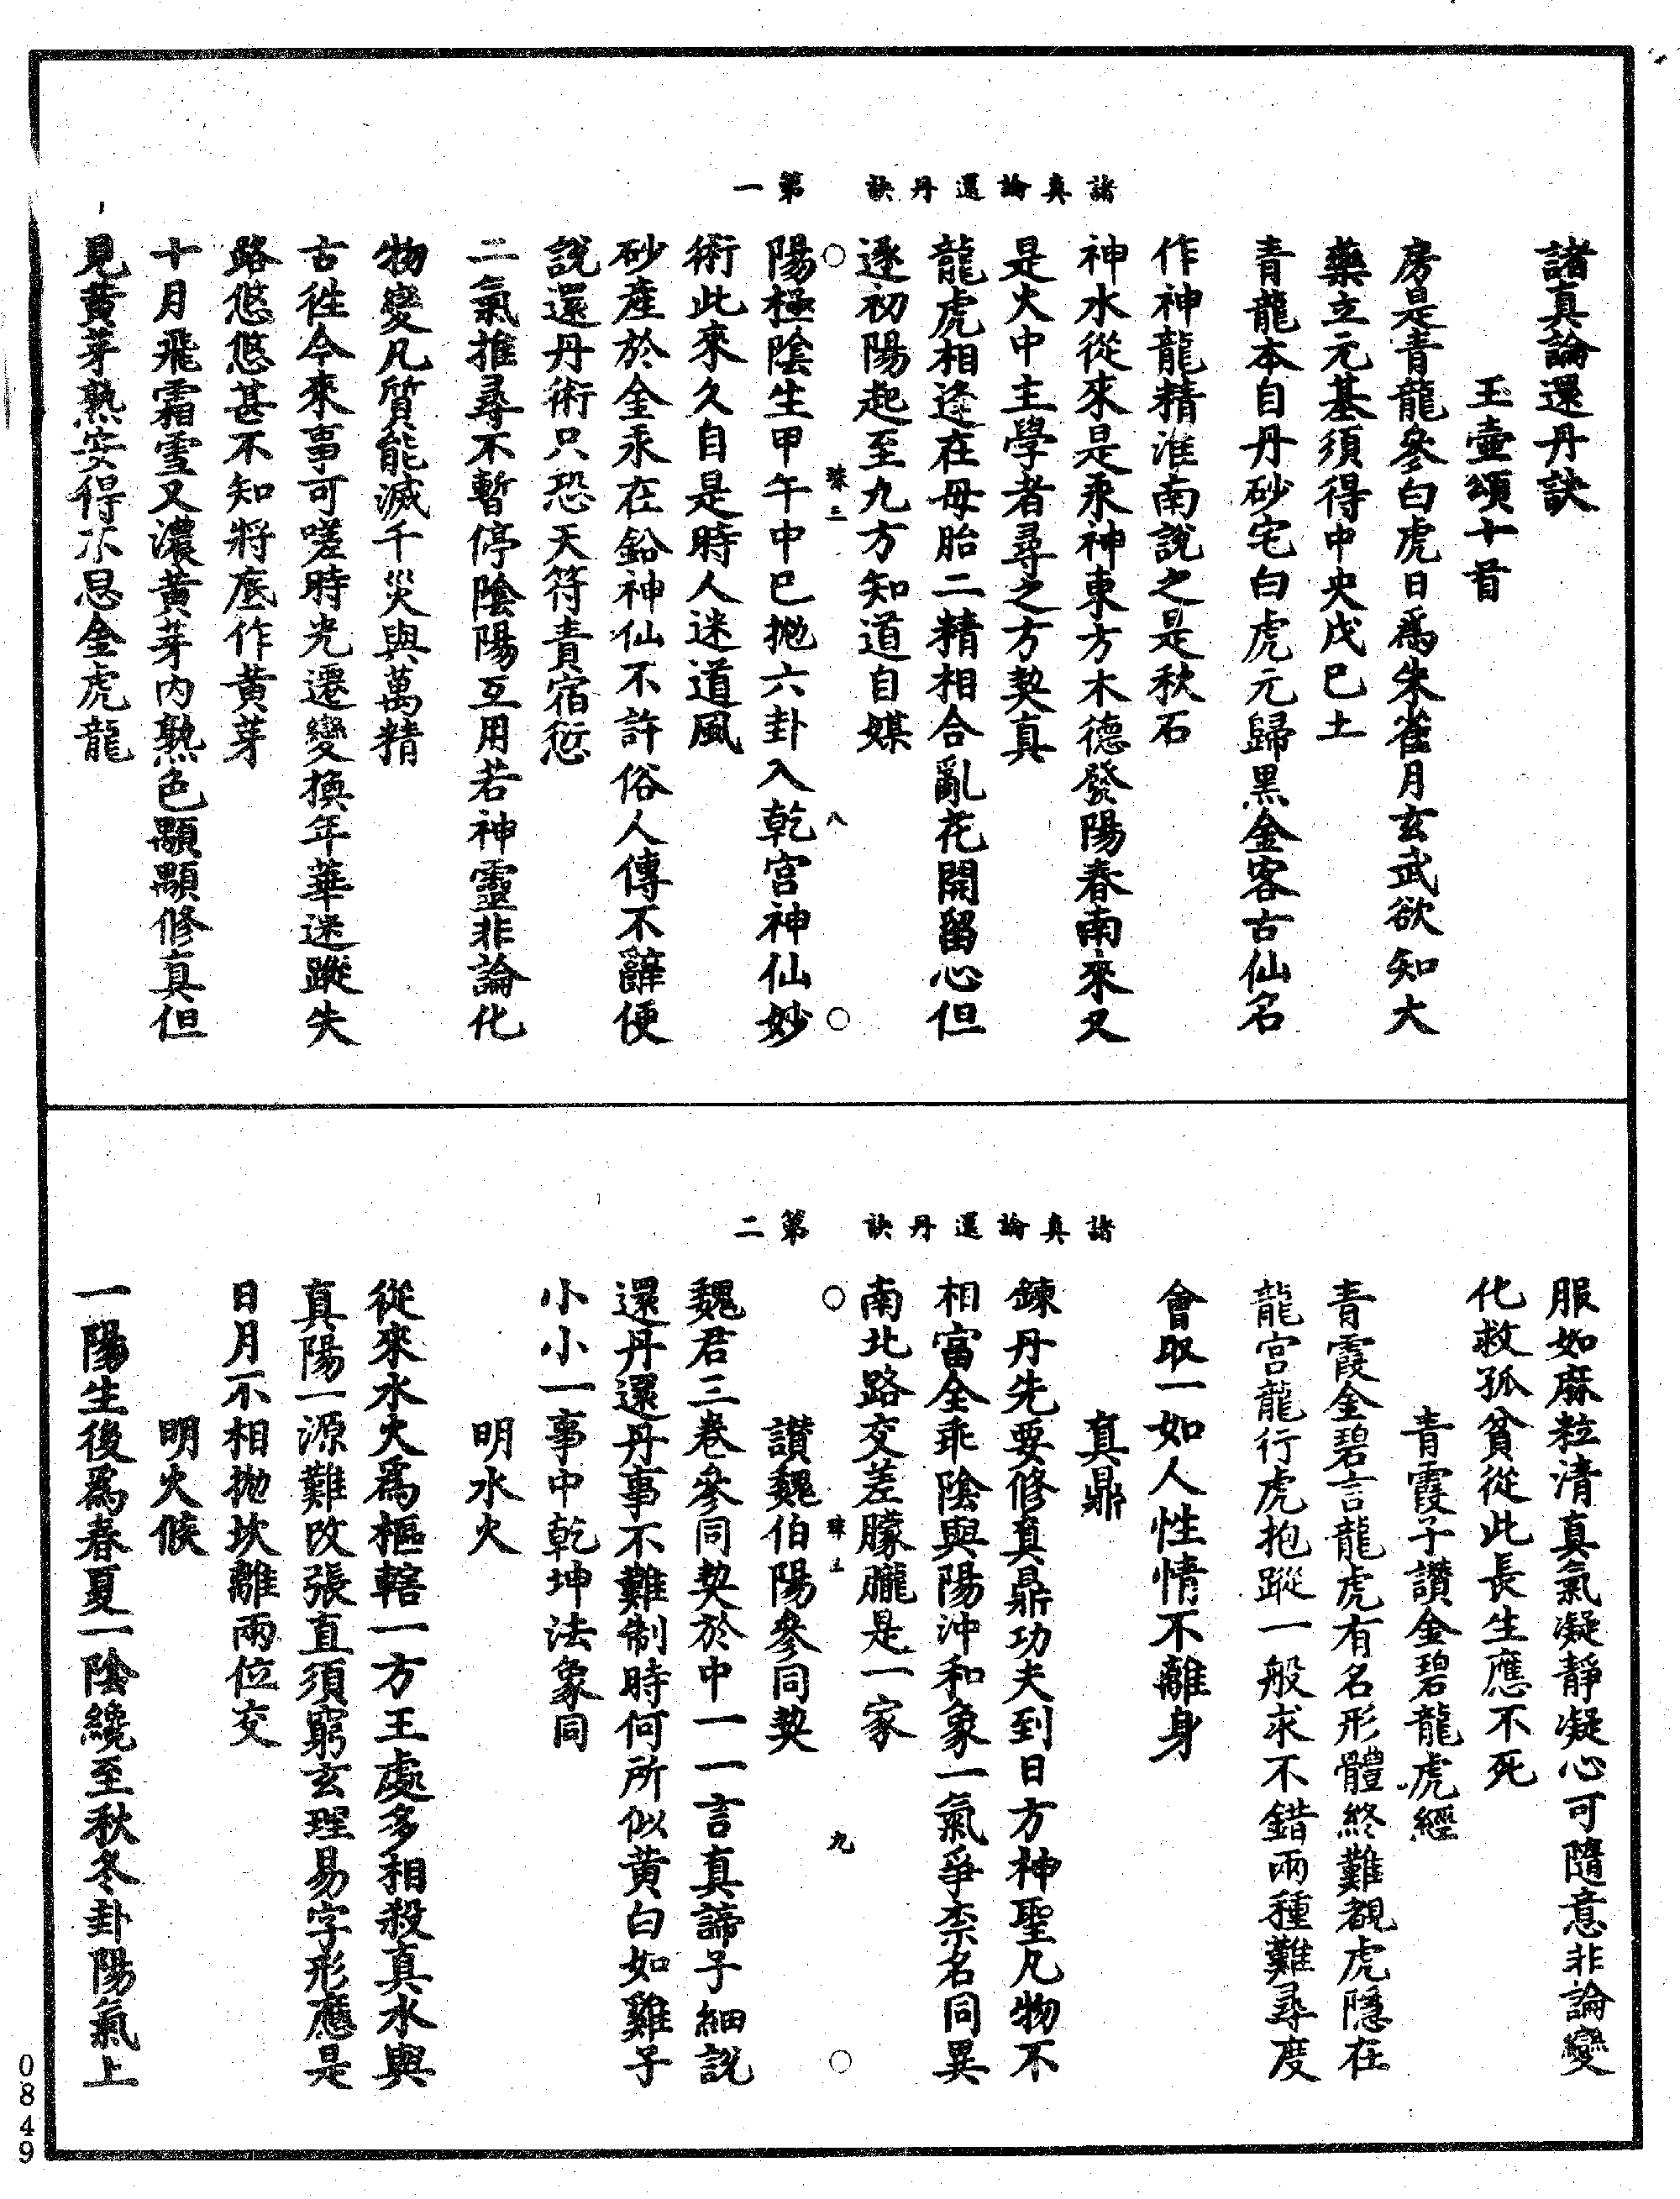 諸真論還丹訣　第一
諸真論還丹訣
玉壺頌十首
房是青龍參白虎日爲朱雀月玄武欲知大
藥立元基須得中央戊巳土
青龍本自丹砂宅白虎元歸黑金客古仙名
作神龍精淮南說之是秋石
神水從來是汞神東方木德發陽春南來又
是火中主學者尋之方契真
龍虎相逢在母胎二精相合亂花開留心但
逐初陽起至九方知道自媒
陽極陰生甲午中巳拋六卦入乾宮神仙妙
術此來久自是時人迷道風
砂產於金汞在鉛神仙不許俗人傳不辭便
說還丹術只恐天符責宿愆
二氣推尋不暫停陰陽互用若神靈非論化
物變凡質能滅千災與萬精
古徃今來事可嗟時光遷變換年華迷蹤失
路悠悠甚不知將底作黃芽
十月飛霜雪又濃黃芽內熟色顒顒修真但
見黃芽熟安得不思金虎龍
八
諸真論還丹訣　第二
服如麻粒清真氣凝靜凝心可隨意非論變
化救孤貧從此長生應不死
青霞子讚金碧龍虎經
青霞金碧言龍虎有名形體終難覩虎隱在
龍宮龍行虎抱蹤一般求不錯兩種難尋度
會取一如人性情不離身
真鼎
鍊丹先要修真鼎功夫到日方神聖凡物不
相富全乖陰與陽沖和象一氣爭柰名同異
南北路交差朦朧是一家
讚魏伯陽參同契
魏君三卷參同契於中一一言真諦子細說
還丹還丹事不難制時何所似黃白如雞子
小小一事中乾坤法象同
明水火
從來水火爲樞轄一方王處多相殺真水與
真陽一源難改張直須窮玄理易字形應是
日月不相拋坎離兩位交
明火候
一陽生後爲春夏一陰纔至秋冬卦陽氣上
九
0849